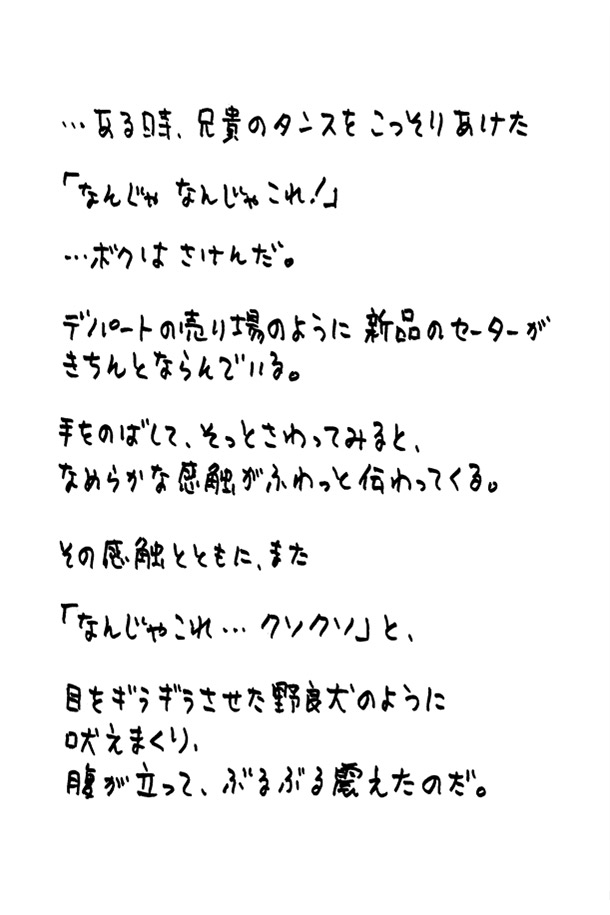 …ある時、兄貴のタンスをこっそりあけた
「なんじゃ なんじゃこれ!」
…ボクは さけんだ。
デパートの売り場のように 新品のセーターが
きちんとならんでいる。
手をのばして、そっとさわってみると、
なめらかな感触がふわっと伝わってくる。
その感触とともに、また
「なんじゃこれ… クソクソ」と、
目をギラギラさせた野良犬のように
吠えまくり、
腹が立って、ぶるぶる震えたのだ。